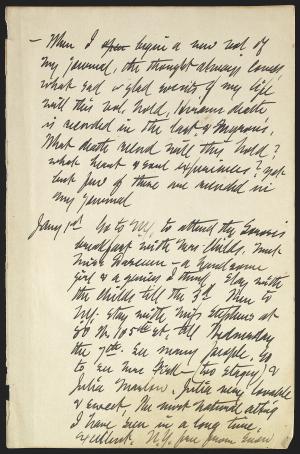 — When I open begin a new vol of
my journal, the thought always comes
what sad or glad events of my life
will this vol. hold, Hiram's death
is recorded in the last, & Myron's.
What death record will this hold?
What heart & soul experiences? yet
but few of these are recorded in
my journal
Jany 1st Go to N.Y. to attend the Sorosis
breakfast with Mrs Childs. Meet
Miss — a handsome
girl & a genius I think. Stay with
the Childs till the 3d. Then to
N.Y. stay with Miss Stephens at
80 W. 105th st, till Wednesday
the 7th. See many people, Go
to see Mrs Fiske — (too stagey) &
Julia Marlow. Julia very lovable
& sweet, the most natural acting
I have seen in a long time,
excellent. N.Y. free from snow